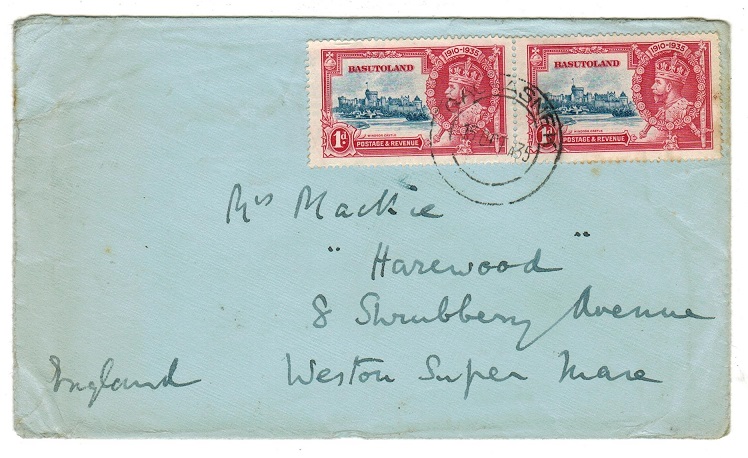 1910-1935 1910-1935
BASUTOLAND BASUTOLAND
WINDSOR CASTLE WINDSOR CASTLE
1d 1d
POSTAGE & REVENUE POSTAGE & REVENUE
35
Mrs Mackie
"Harewood"
8 Shrubbery Avenue
England Weston Super Mare